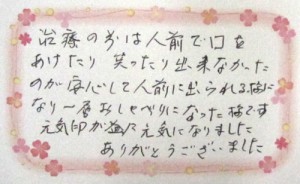 治療の前は人前で口を
あけたり 笑ったり出来なかった
のが安心して人前に出られる様に
なり一層おしゃべりになった様です
元気印が益に元気になりました
ありがとうございました